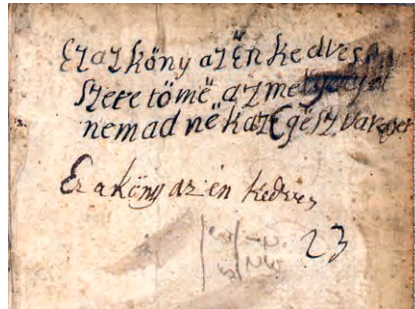 Ez az köny az ën kedves
szeretömë az melyet
nem ad në k az Egész varosert
Ez a köny az én kedves
23